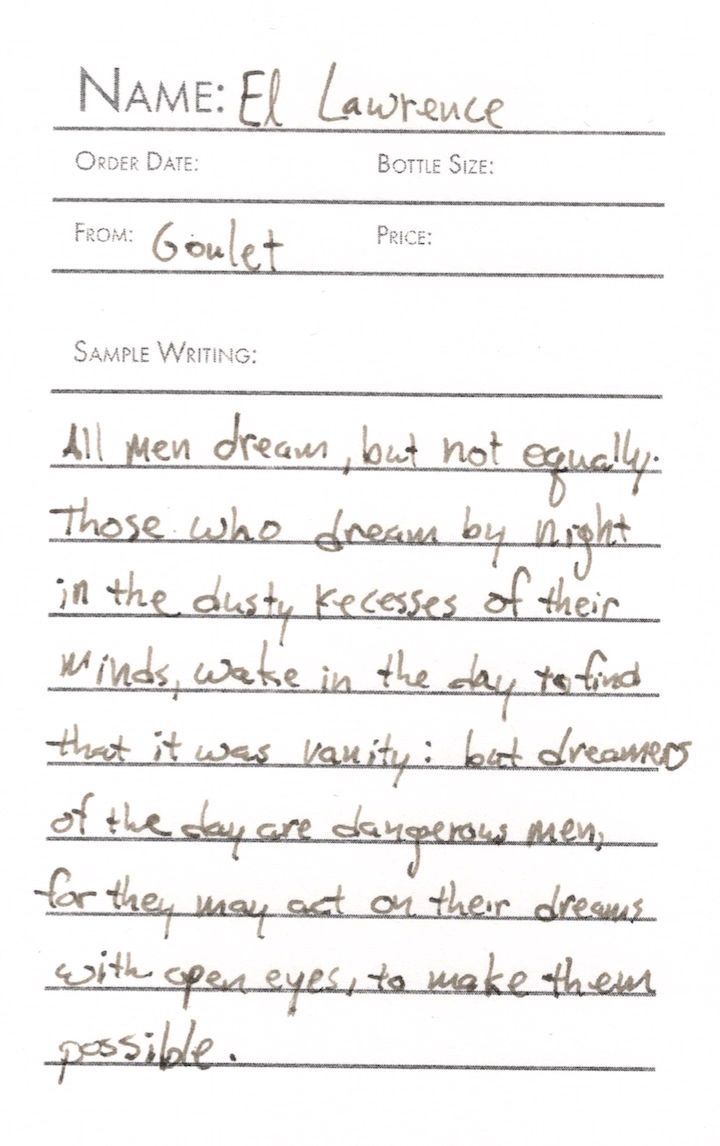 NAME: El Lawrence
ORDER DATE: BOTTLE SIZE:
FROM: Goulet PRICE:
SAMPLE WRITING:
All men dream, but not equally.
Those who dream by night
in the dusty recesses of their
minds, wake in the day to find
that it was vanity: but dreamers
of the day are dangerous men,
for they may act on their dreams
with open eyes, to make them
possible.